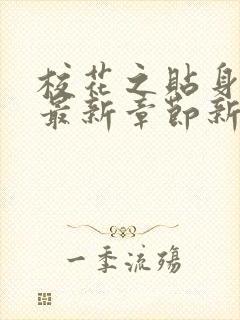 校花之貼身
最新章節新
一季流殤